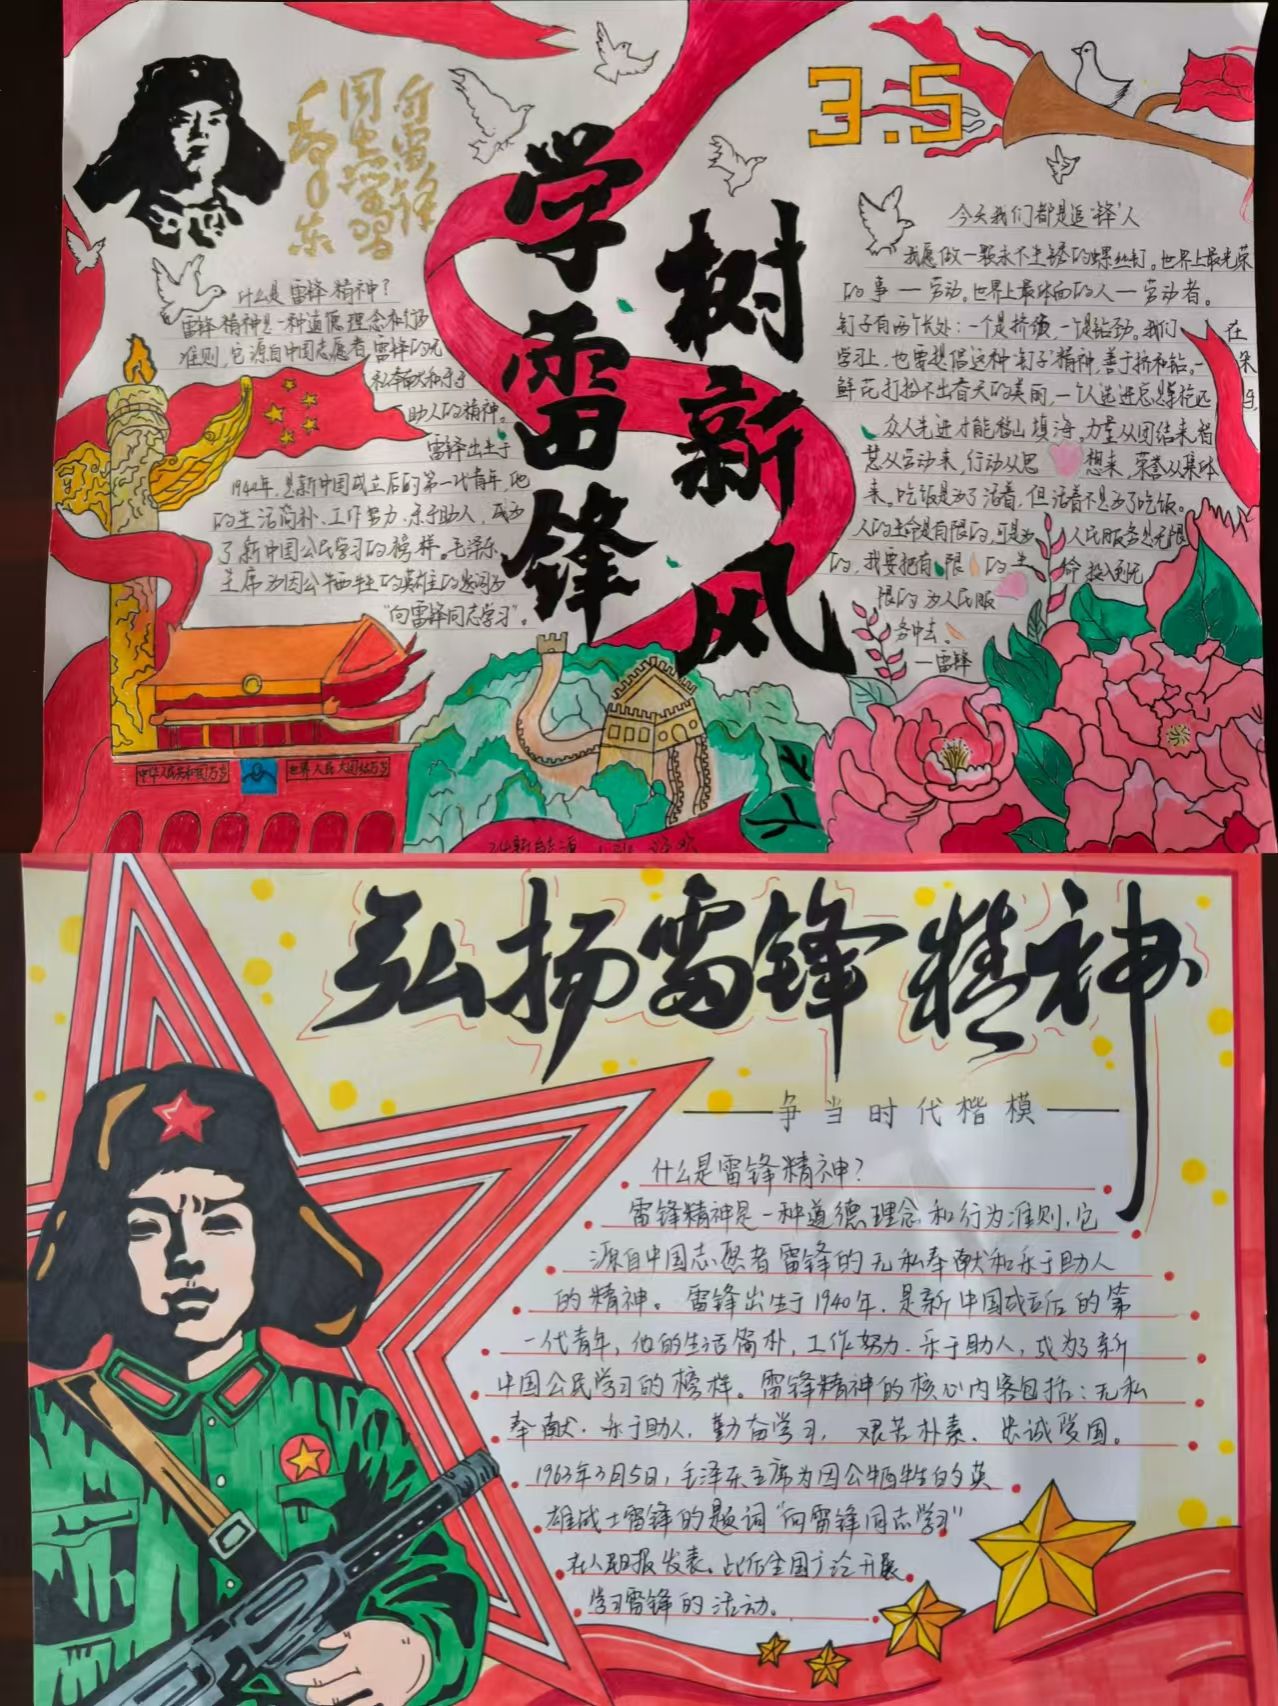 向雷锋
同志学习
毛泽东
学雷锋
树新风
3.5
什么是雷锋精神?
雷锋精神是一种道德理念和行为
准则,它源自中国志愿者雷锋的无
私奉献和乐于
助人的精神。
雷锋出生于
1940年,是新中国成立后的第一代青年,他
的生活简朴、工作努力、乐于助人,成为
了新中国公民学习的榜样。毛泽东
主席为因公牺牲的英雄的题词为
“向雷锋同志学习”。
中华人民共和国万岁
世界人民大团结万岁
今天我们都是追‘锋’人
我愿做一颗永不生锈的螺丝钉。世界上最光荣
的事—劳动。世界上最体面的人—劳动者。
钉子有两个长处:一个是挤劲,一个是钻劲。我们在
学习上,也要提倡这种“钉子”精神,善于挤和钻。一朵
鲜花打扮不出春天的美丽,一个人先进总是单枪匹马,
众人先进才能移山填海。力量从团结来,智
慧从劳动来,行动从思想来,荣誉从集体
来。吃饭是为了活着,但活着不是为了吃饭。
人的生命是有限的,可是为人民服务是无限
的,我要把有限的生命投入到无
限的为人民服
务中去。
—雷锋
弘扬雷锋精神
争当时代楷模
什么是雷锋精神?
雷锋精神是一种道德理念和行为准则,它
源自中国志愿者雷锋的无私奉献和乐于助人
的精神。雷锋出生于1940年,是新中国成立后的第
一代青年,他的生活简朴,工作努力、乐于助人,成为了新
中国公民学习的榜样。雷锋精神的核心内容包括:无私
奉献、乐于助人,勤奋学习,艰苦朴素、忠诚爱国。
1963年3月5日,毛泽东主席为因公牺牲的英
雄战士雷锋的题词“向雷锋同志学习”
在人民日报发表。此后全国广泛开展
学习雷锋的活动。